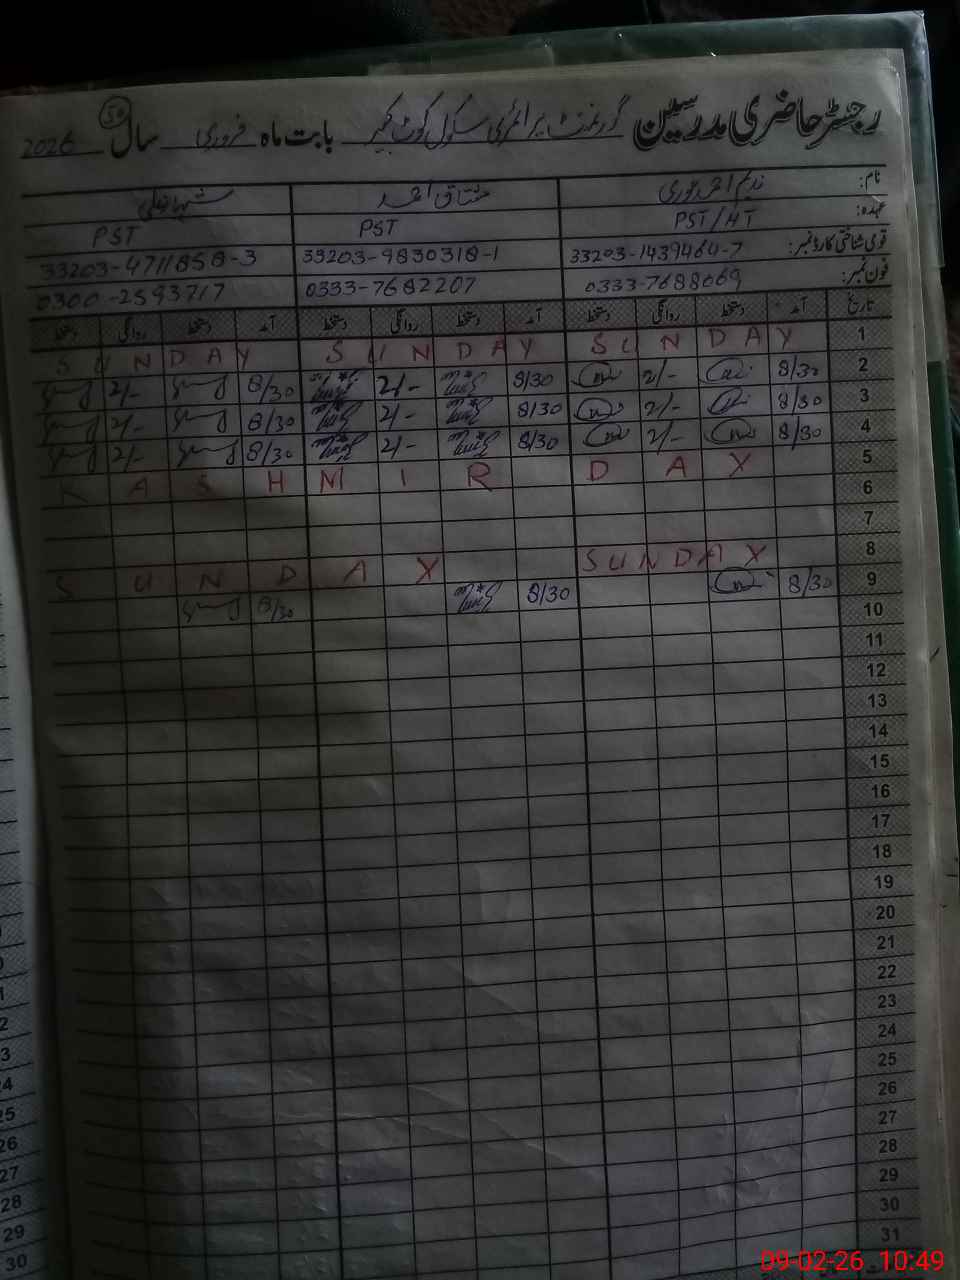 رجسٹر حاضری مدرسین گورنمنٹ پرائمری سکول کوٹ کبیر بابت ماہ فروری سال 2026
50
نام: ندیم احمد غوری مشتاق احمد
عہدہ: PST/HT PST PST
قومی شناختی کارڈ نمبر: 33203-1439464-7 33203-9830318-1 33203-4711858-3
فون نمبر: 0333-7688069 0333-7682207 0300-2593717
تاریخ آمد دستخط روانگی دستخط آمد دستخط روانگی دستخط آمد دستخط روانگی دستخط
1 SUNDAY SUNDAY SUNDAY
2 8/30 2/- 8/30 2/- 8/30 2/-
3 8/30 2/- 8/30 2/- 8/30 2/-
4 8/30 2/- 8/30 2/- 8/30 2/-
5 KASHMIR DAY
6
7
8 SUNDAY SUNDAY
9 8/30 8/30 8/30
10
11
12
13
14
15
16
17
18
19
20
21
22
23
24
25
26
27
28
29
30
31
25
26
27
28
29
30
09-02-26 10:49